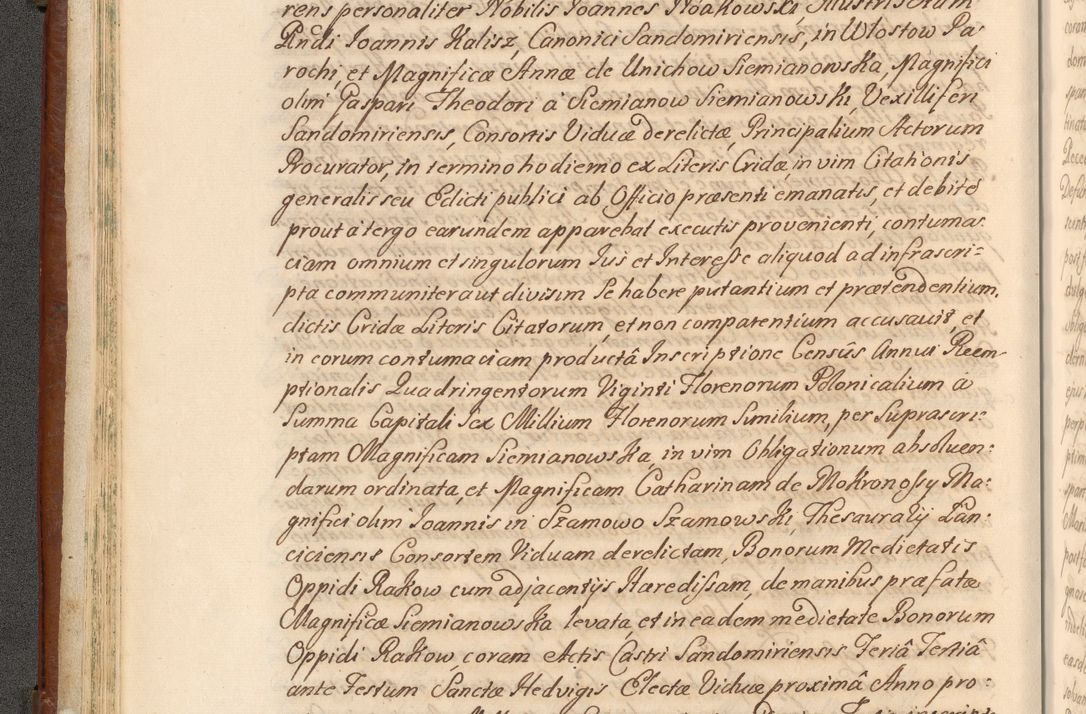 rens personaliter Nobilis Joannes Noakowski, Illustris Adm
Rndi Joannis Kalisz, Canonici Sandomiriensis, in Wlostow Pa-
rochi, et Magnificæ Annæ de Unichow Siemianowska, Magnifici
olim Gaspari Theodori à Siemianow Siemianowski, Vexilliferi
Sandomiriensis, Consortis Viduæ derelictæ, Principalium Actorum
Procurator, in termino hodierno ex Literis Cridæ, in vim Citationis
generalis seu Edicti publici ab Officio præsenti emanatis, et debitè
prout à tergo earundem apparebat executis provenienti, contuma-
ciam omnium et singulorum Jus et Interesse aliquod ad infrascri-
pta communiter aut divisim se habere putantium et prætendentium,
dictis Cridæ Literis Citatorum, et non comparentium accusavit, et
in eorum contumaciam productâ Inscriptione Censûs Annui Reem-
ptionalis Quadringentorum Viginti Florenorum Polonicalium à
Summa Capitali Sex Millium Florenorum Similium, per Suprascri-
ptam Magnificam Siemianowska, in vim Obligationum absolven-
darum ordinata, et Magnificam Catharinam de Mokronossy Ma-
gnifici olim Joannis in Szamowo Szamowski, Thesaurarij Lan-
ciciensis Consortem Viduam derelictam, Bonorum Medietatis
Oppidi Rakow cum adjacentijs Hæredissam, de manibus præfatæ
Magnificæ Siemianowska levata, et in eadem medietate Bonorum
Oppidi Rakow, coram Actis Castri Sandomiriensis Feriâ Tertiâ
ante Festum Sanctæ Hedvigis Electæ Viduæ proximâ Anno pro-